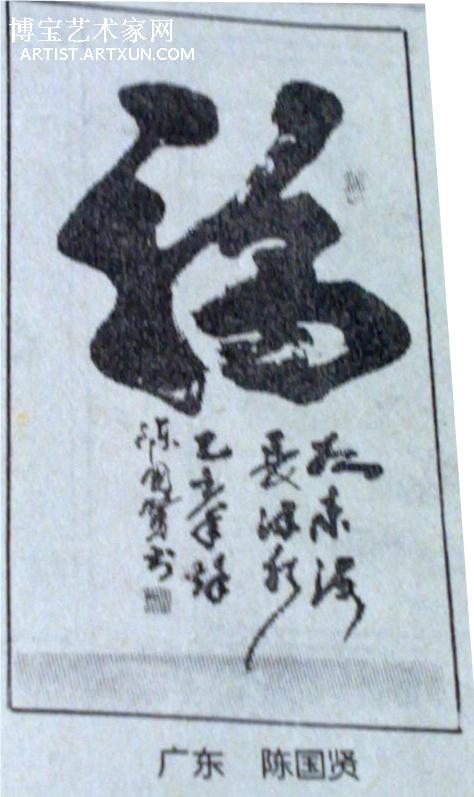 博宝艺术家网
ARTIST.ARTXUN.COM
福
如东海
長流水
乙亥年
陈国贤书
广东 陈国贤